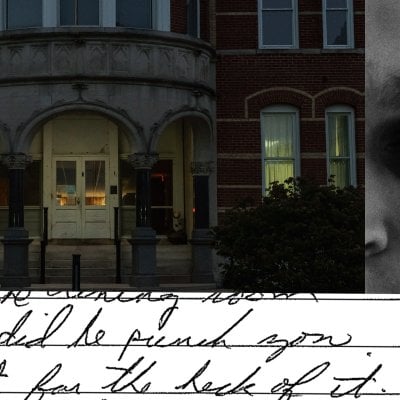 dining room
did he punch you
for the heck of it.